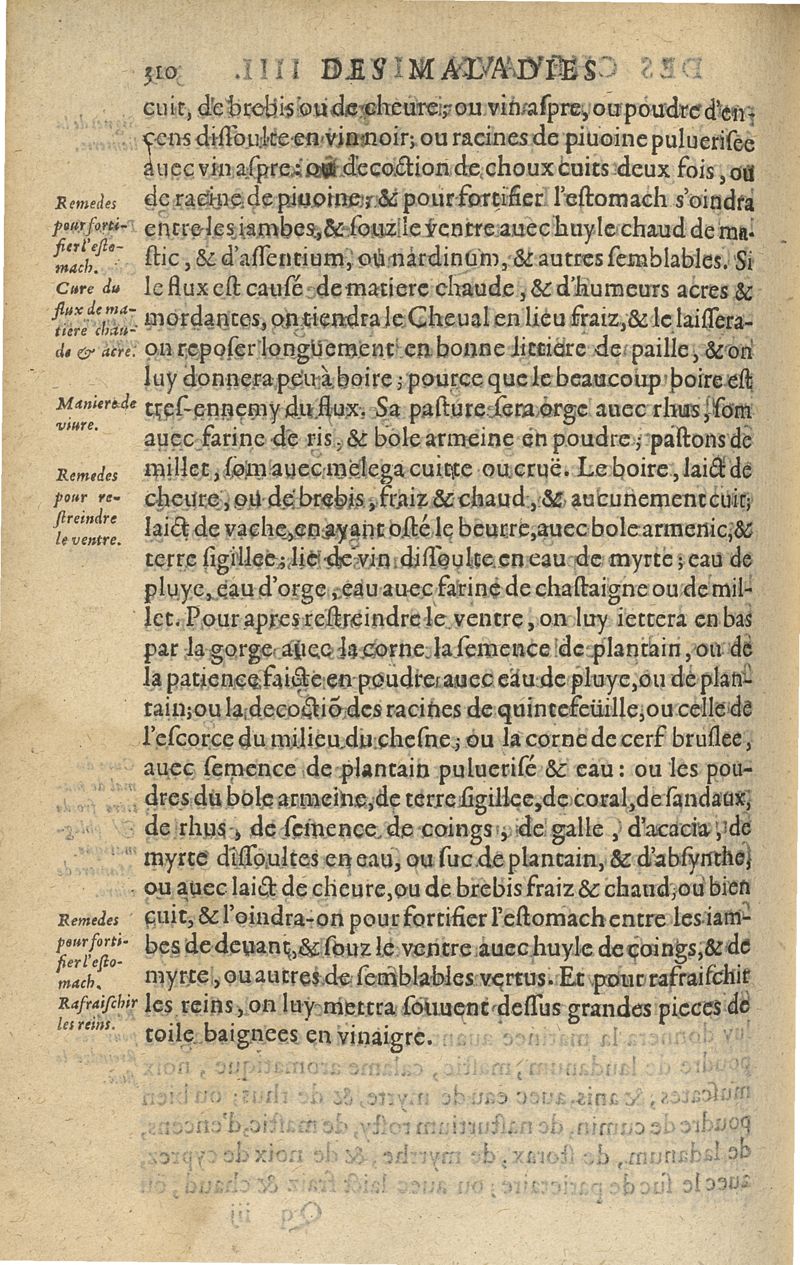 310 DES MALADIES
cuit, de brebis ou de cheure; ou vin aspre, ou poudre d'en-
cens dissoulte en vin noir; ou racines de piuoine puluerisee
auec vin aspre: ou decoction de choux cuits deux fois, ou
de racine de piuoine; & pour fortifier l'estomach s'oindra
entre les iambes, & souz le ventre auec huyle chaud de ma-
stic, & d'assentium, ou nardinum, & autres semblables. Si
le flux est causé de matiere chaude, & d'humeurs acres &
mordantes, on tiendra le Cheual en lieu fraiz, & le laissera-
on reposer longuement en bonne littiere de paille, & on
luy donnera peu à boire; pource que le beaucoup boire est
tres-ennemy du flux. Sa pasture sera orge auec rhus, som
auec farine de ris, & bole armeine en poudre; pastons de
millet, som auec melega cuitte ou cruë. Le boire, laict de
cheure, ou de brebis, fraiz & chaud, & aucunement cuit;
laict de vache, en ayant osté le beurre, auec bole armenic, &
terre sigillee; lie de vin dissoulte en eau de myrte; eau de
pluye, eau d'orge, eau auec farine de chastaigne ou de mil-
let. Pour apres restreindre le ventre, on luy iettera en bas
par la gorge auec la corne la semence de plantain, ou de
la patience faicte en poudre auec eau de pluye, ou de plan-
tain; ou la decoctiõ des racines de quintefeüille, ou celle de
l'escorce du milieu du chesne; ou la corne de cerf bruslee,
auec semence de plantain puluerisé & eau: ou les pou-
dres du bole armeine, de terre sigillee, de coral, de sandaux,
de rhus, de semence de coings, de galle, d'acacia, de
myrte dissoultes en eau, ou suc de plantain, & d'absynthe,
ou auec laict de cheure, ou de brebis fraiz & chaud, ou bien
cuit, & l'oindra-on pour fortifier l'estomach entre les iam-
bes de deuant, & souz le ventre auec huyle de coings, & de
myrte, ou autres de semblables vertus. Et pour rafraischir
les reins, on luy mettra souuent dessus grandes pieces de
toile baignees en vinaigre.
Remedes
pour forti-
fier l'esto-
mach.
Cure du
flux de ma-
tiere chau-
de & acre.
Maniere de
viure.
Remedes
pour re-
streindre
le ventre.
Remedes
pour forti-
fier l'esto-
mach.
Rafraischir
les reins.